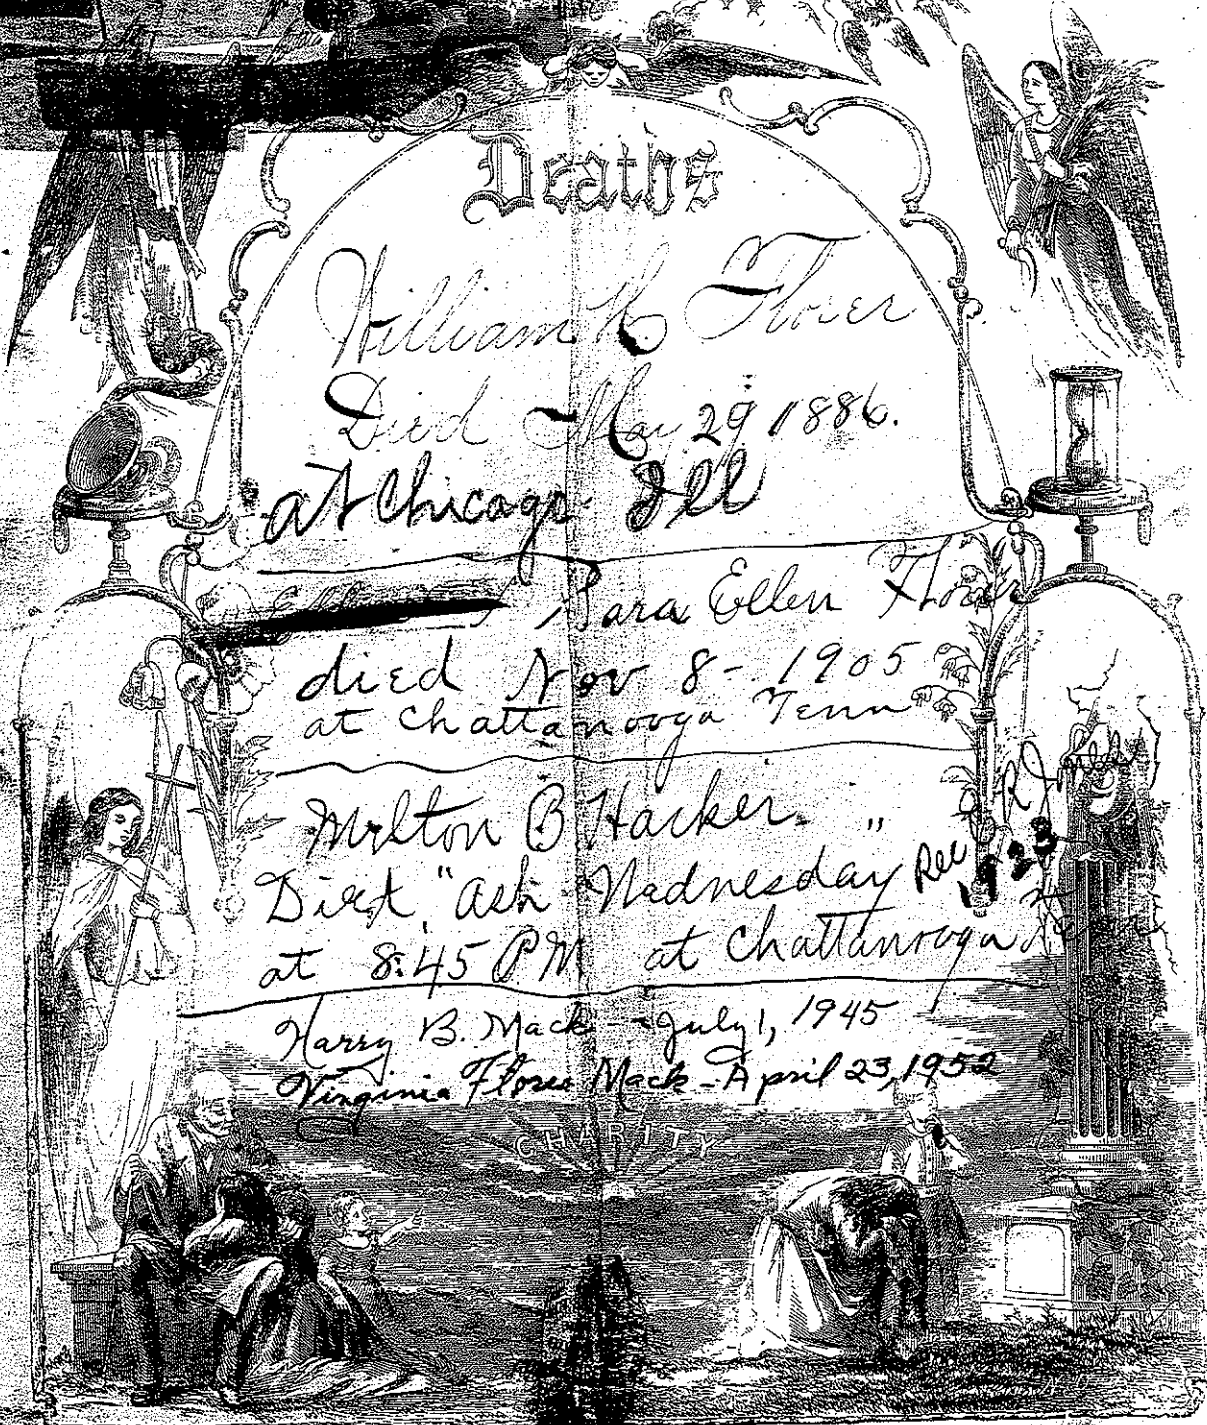 Deaths
William H Florer
Died May 29 1886.
at Chicago Ill
Sara Ellen
died Nov 8- 1905
at Chattanooga Tenn
Milton B Hacker. "
Died "Ash Wednesday
at 8:45 PM at Chattanooga Tenn
Harry B. Mack -- July 1, 1945
Virginia Florer Mack - April 23, 1952
CHARITY